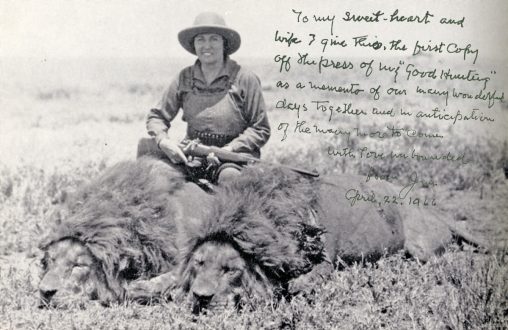 To my sweet-heart and
wife I give this, the first Copy
off the press of my "Good Hunting"
as a memento of our many wonderful
days together and in anticipation
of the many more to come
with love unbounded
April, 22, 19